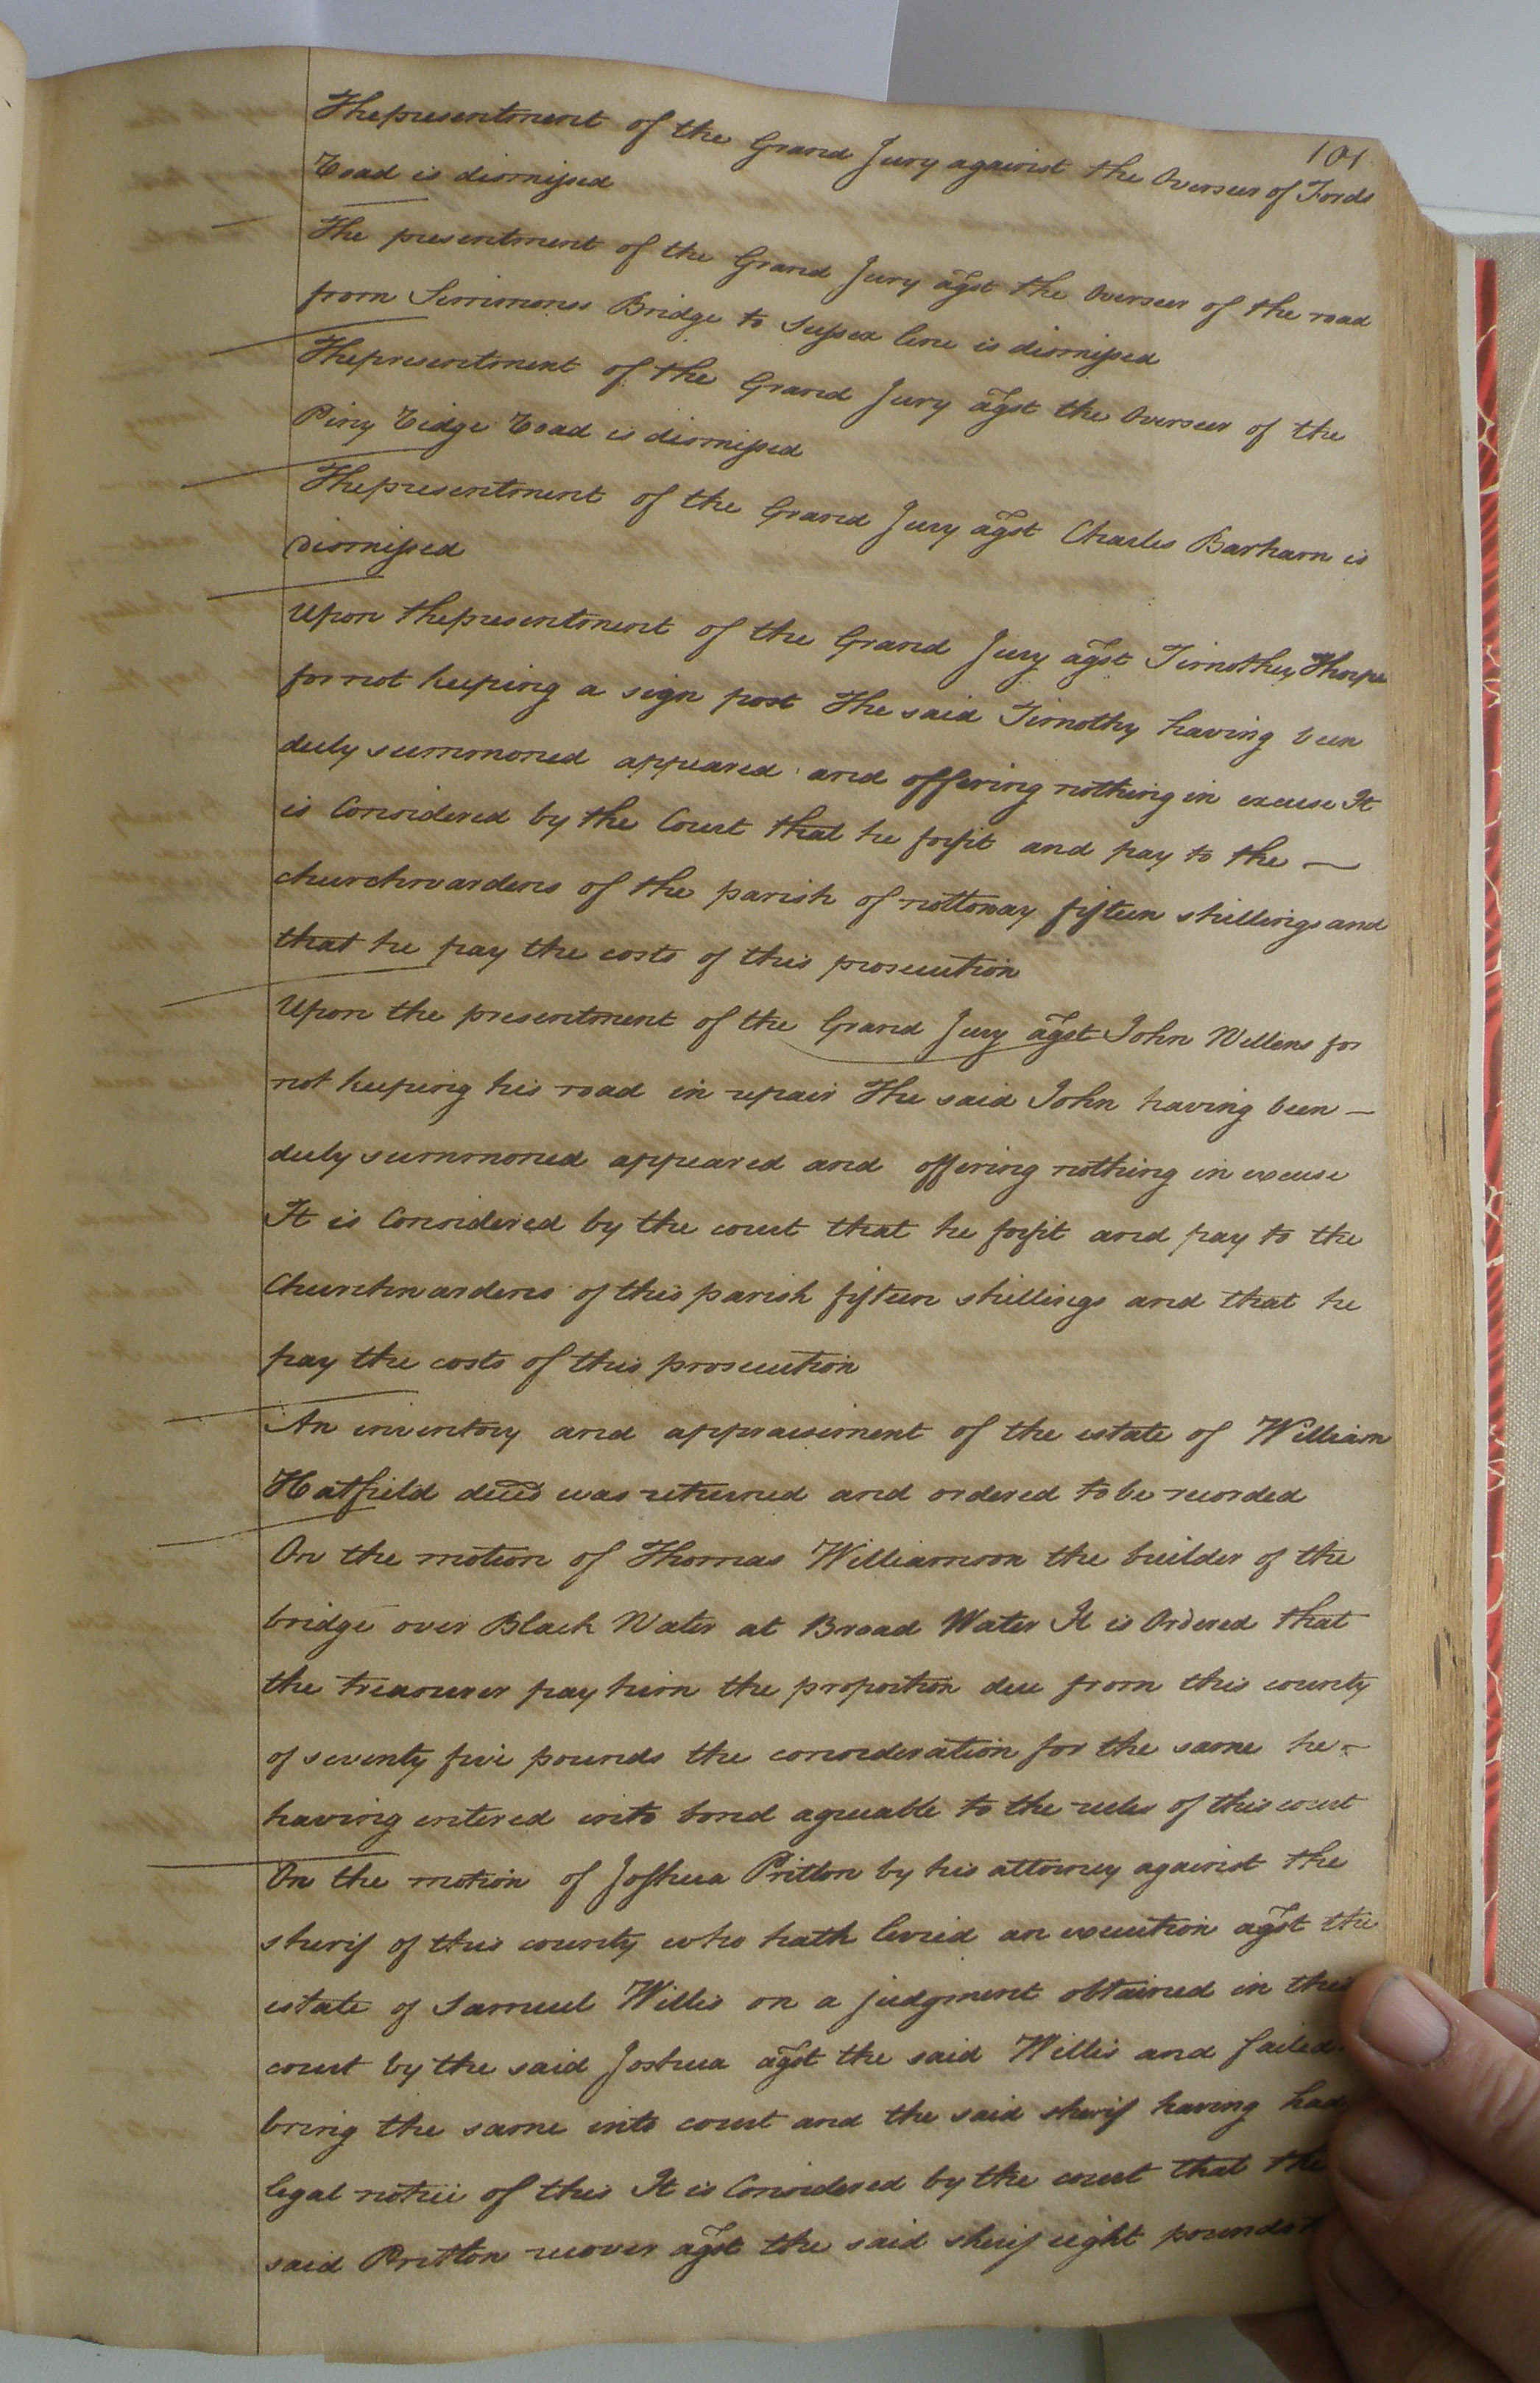 101
The presentment of the Grand Jury against the Overseer of Fords
Road is dismissed
The presentment of the Grand Jury agst the Overseer of the road
from Simmons Bridge to Sussex line is dismissed
The presentment of the Grand Jury agst the Overseer of the
Piny Ridge Road is dismissed
The presentment of the Grand Jury agst Charles Barham is
dismissed
Upon the presentment of the Grand Jury agst Timothy Thorpe
for not keeping a sign post The said Timothy having been
duly summoned appeared and offering nothing in excuse It
is Considered by the Court that he forfit and pay to the —
churchwardens of the parish of nottoway fifteen shillings and
that he pay the costs of this prosecution
Upon the presentment of the Grand Jury agst John Wellens for
not keeping his road in repair The said John having been —
duly summoned appeared and offering nothing in excuse
It is Considered by the court that he forfit and pay to the
Churchwardens of this parish fifteen shillings and that he
pay the costs of this prosecution
An inventory and appraisement of the estate of William
Hatfield decd was returned and ordered to be recorded
On the motion of Thomas Williamson the builder of the
bridge over Black Water at Broad Water It is Ordered that
the treasurer pay him the proportion due from this county
of seventy five pounds the consideration for the same he —
having entered into bond agreeable to the rules of this court
On the motion of Joshua Pritlon by his attorney against the
sherif of this county who hath levied an execution agst the
estate of Samuel Willis on a judgment obtained in this
court by the said Joshua agst the said Willis and failed
bring the same into court and the said sherif having had
legal notice of this It is Considered by the court that the
said Pritlon recover agst the said sherif eight pounds